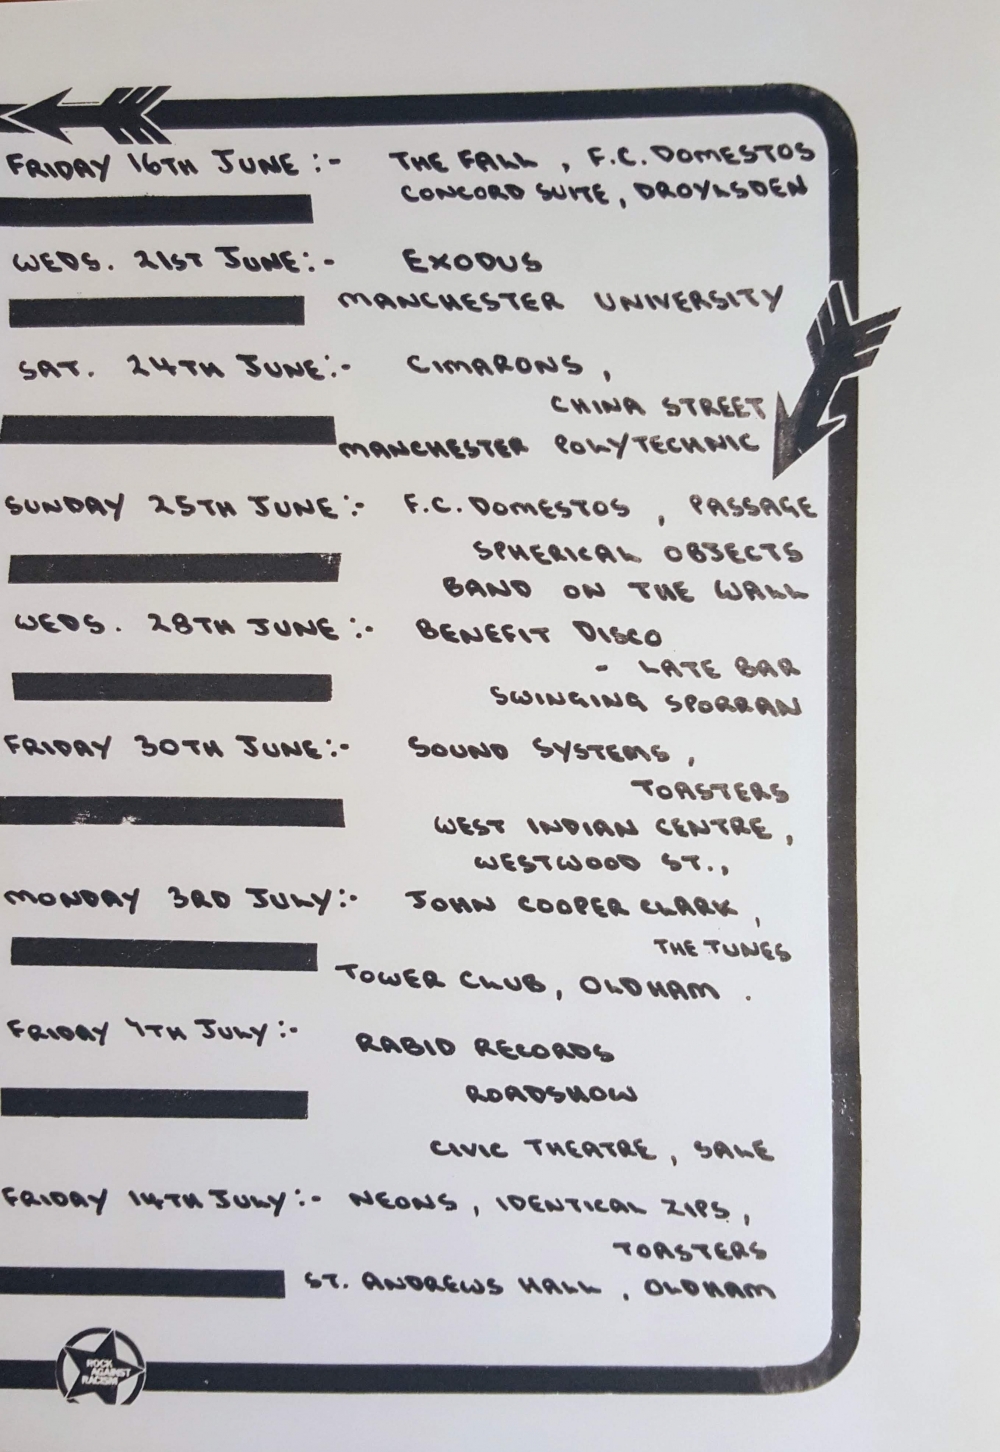 FRIDAY 16TH JUNE :- THE FALL , F.C. DOMESTOS
CONCORD SUITE, DROYLSDEN
WEDS. 21ST JUNE:- EXODUS
MANCHESTER UNIVERSITY
SAT. 24TH JUNE:- CIMARONS ,
CHINA STREET
MANCHESTER POLYTECHNIC
SUNDAY 25TH JUNE :- F.C. DOMESTOS , PASSAGE
SPHERICAL OBJECTS
BAND ON THE WALL
WEDS. 28TH JUNE :- BENEFIT DISCO
- LATE BAR
SWINGING SPORRAN
FRIDAY 30TH JUNE:- SOUND SYSTEMS ,
TOASTERS
WEST INDIAN CENTRE ,
WESTWOOD ST.,
MONDAY 3RD JULY:- JOHN COOPER CLARK ,
THE TUNES
TOWER CLUB, OLDHAM .
FRIDAY 7TH JULY:- RABID RECORDS
ROADSHOW
CIVIC THEATRE , SALE
FRIDAY 14TH JULY:- NEONS , IDENTICAL ZIPS ,
TOASTERS
ST. ANDREWS HALL , OLDHAM
ROCK
AGAINST
RACISM